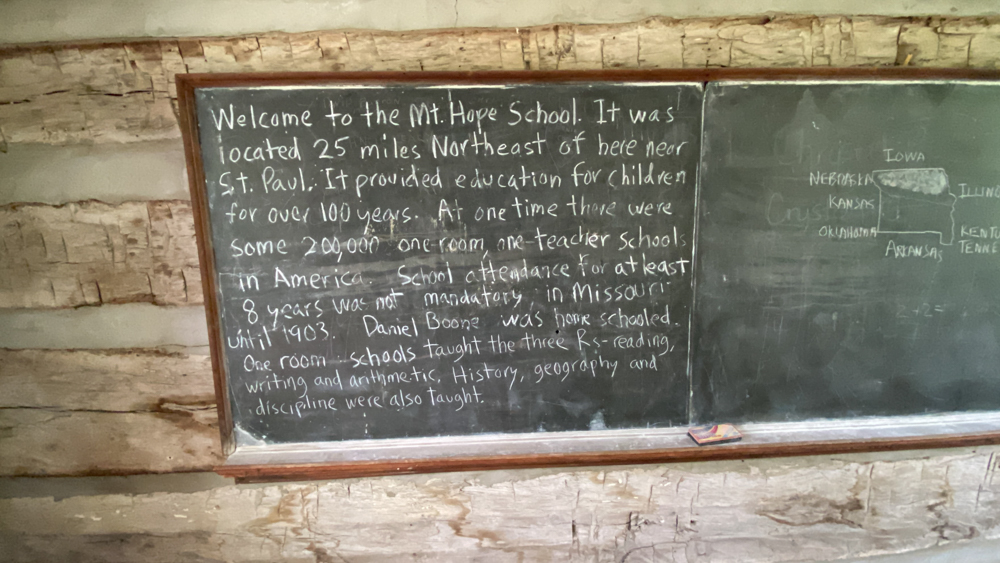 Welcome to the Mt. Hope School. It was
located 25 miles Northeast of here near
St. Paul. It provided education for children
for over 100 years. At one time there were
some 200,000 one-room, one-teacher schools
in America. School attendance for at least
8 years was not mandatory in Missouri
until 1903. Daniel Boone was home schooled.
One room schools taught the three Rs-reading,
writing and arithmetic. History, geography and
discipline were also taught.
IOWA
NEBRASKA
ILLINO
KANSAS
OKLAHOMA
KENTU
ARKANSAS
TENNE
2+2=